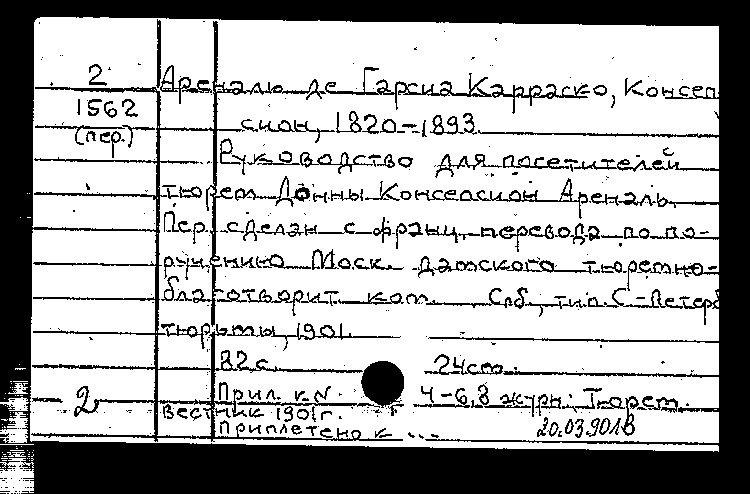 2
1562
(пер.)
Ареналь де Гарсиа Карраско, Консеп
сион, 1820-1893.
Руководство для посетителей
тюрем Донны Консепсион Ареналь.
Пер. сделан с франц. перевода по по-
ручению Моск. дамского тюремно-
благотворит. ком. Спб., тип. С-Петерб
тюрьмы, 1901.
82 с. 24 см.
Прил. к № 4-6,8 журн: Тюрем.
вестник 1901г.
Приплетено к ...
2
20.03.901В